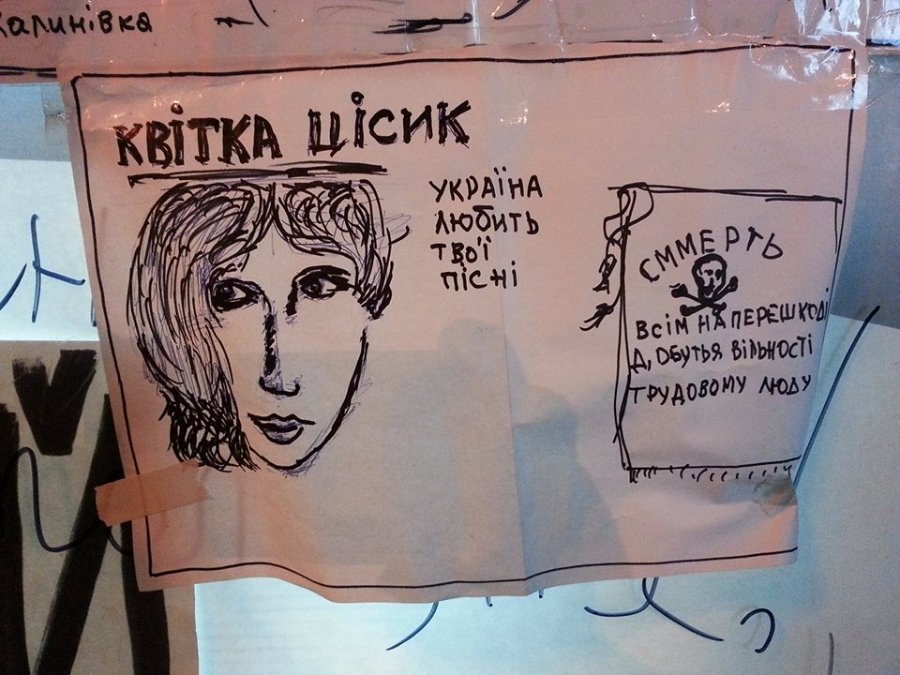 Калинівка
КВІТКА ЦІСИК
УКРАЇНА
ЛЮБИТЬ
ТВО'Ї
ПІСНІ
СММЕРТЬ
ВСІМ НА ПЕРЕШКОДІ
Д,ОБУТЬЯ ВІЛЬНОСТІ
ТРУДОВОМУ ЛЮДУ